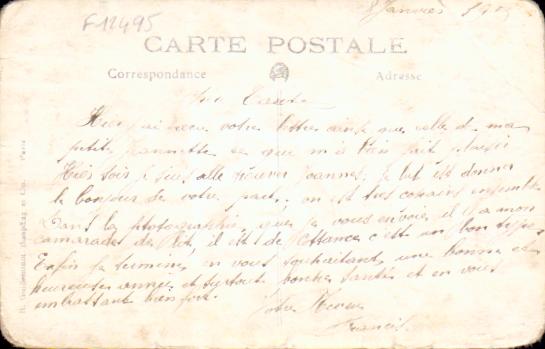 F12495
8 Janvier 19
CARTE POSTALE
Correspondance
Adresse
Hier j'ai recu votre lettre ainsi que celle de ma
petite Jeannette ce qui m'a bien fait plaisir
Hier soir je suis allé trouver Joannes je lui est donner
le bonjour de votre part, on est très copains ensemble
Dans la photographie que je vous envoie il y a mon
camarade de lit, il est de c'est un bon type.
Enfin je termine en vous souhaitant une bonne et
heureuse année et surtout bonne santé et en vous
embrassant bien fort.
Votre
Francis